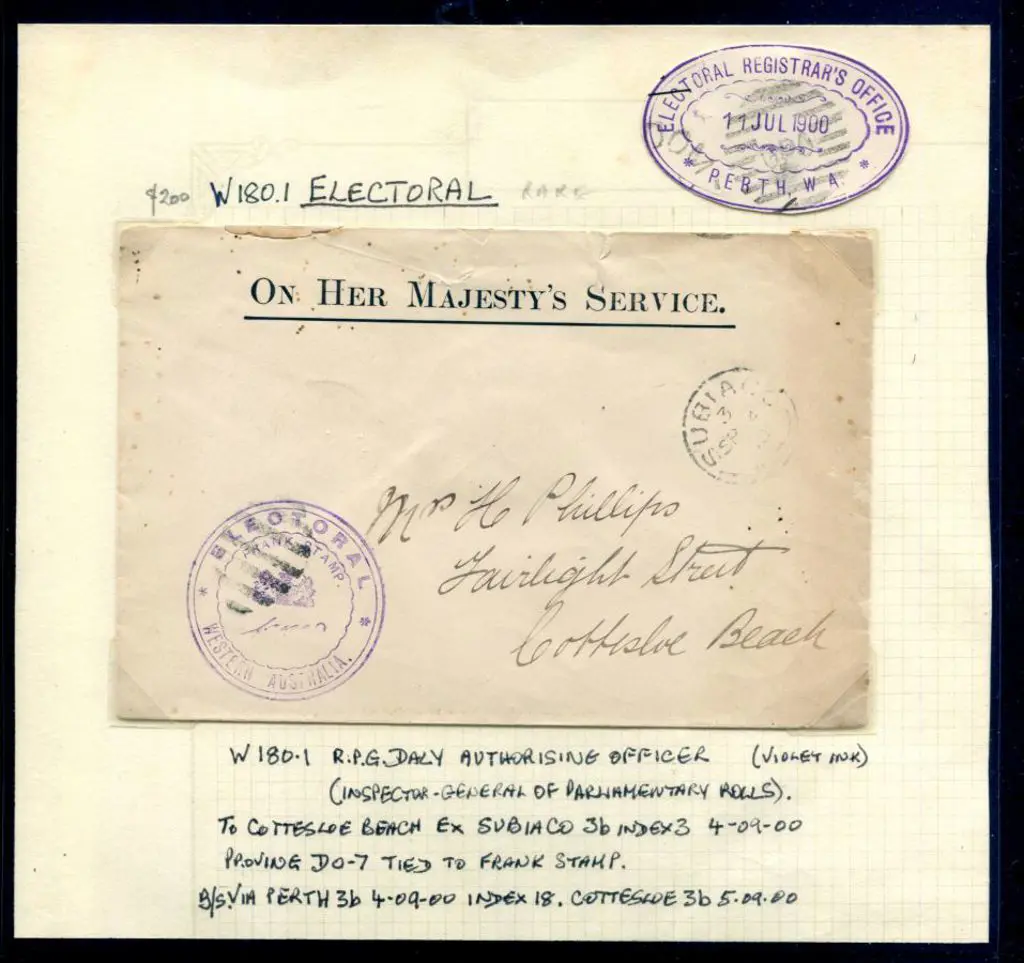 ELECTORAL REGISTRAR'S OFFICE
11 JUL 1900
* PERTH, W.A. *
$200 W180.1 ELECTORAL RARE
ON HER MAJESTY'S SERVICE.
SUBIACO
3
SP
Mrs H Phillips
Fairlight Street
Cottesloe Beach
* ELECTORAL *
FRANK STAMP.
WESTERN AUSTRALIA.
W180.1 R.P.G. DALY AUTHORISING OFFICER (VIOLET INK)
(INSPECTOR-GENERAL OF PARLIAMENTARY ROLLS).
TO COTTESLOE BEACH EX SUBIACO 3b INDEX 3 4-09-00
PROVING DO-7 TIED TO FRANK STAMP.
B/S. VIA PERTH 3b 4-09-00 INDEX 18. COTTESLOE 3b 5.09.00